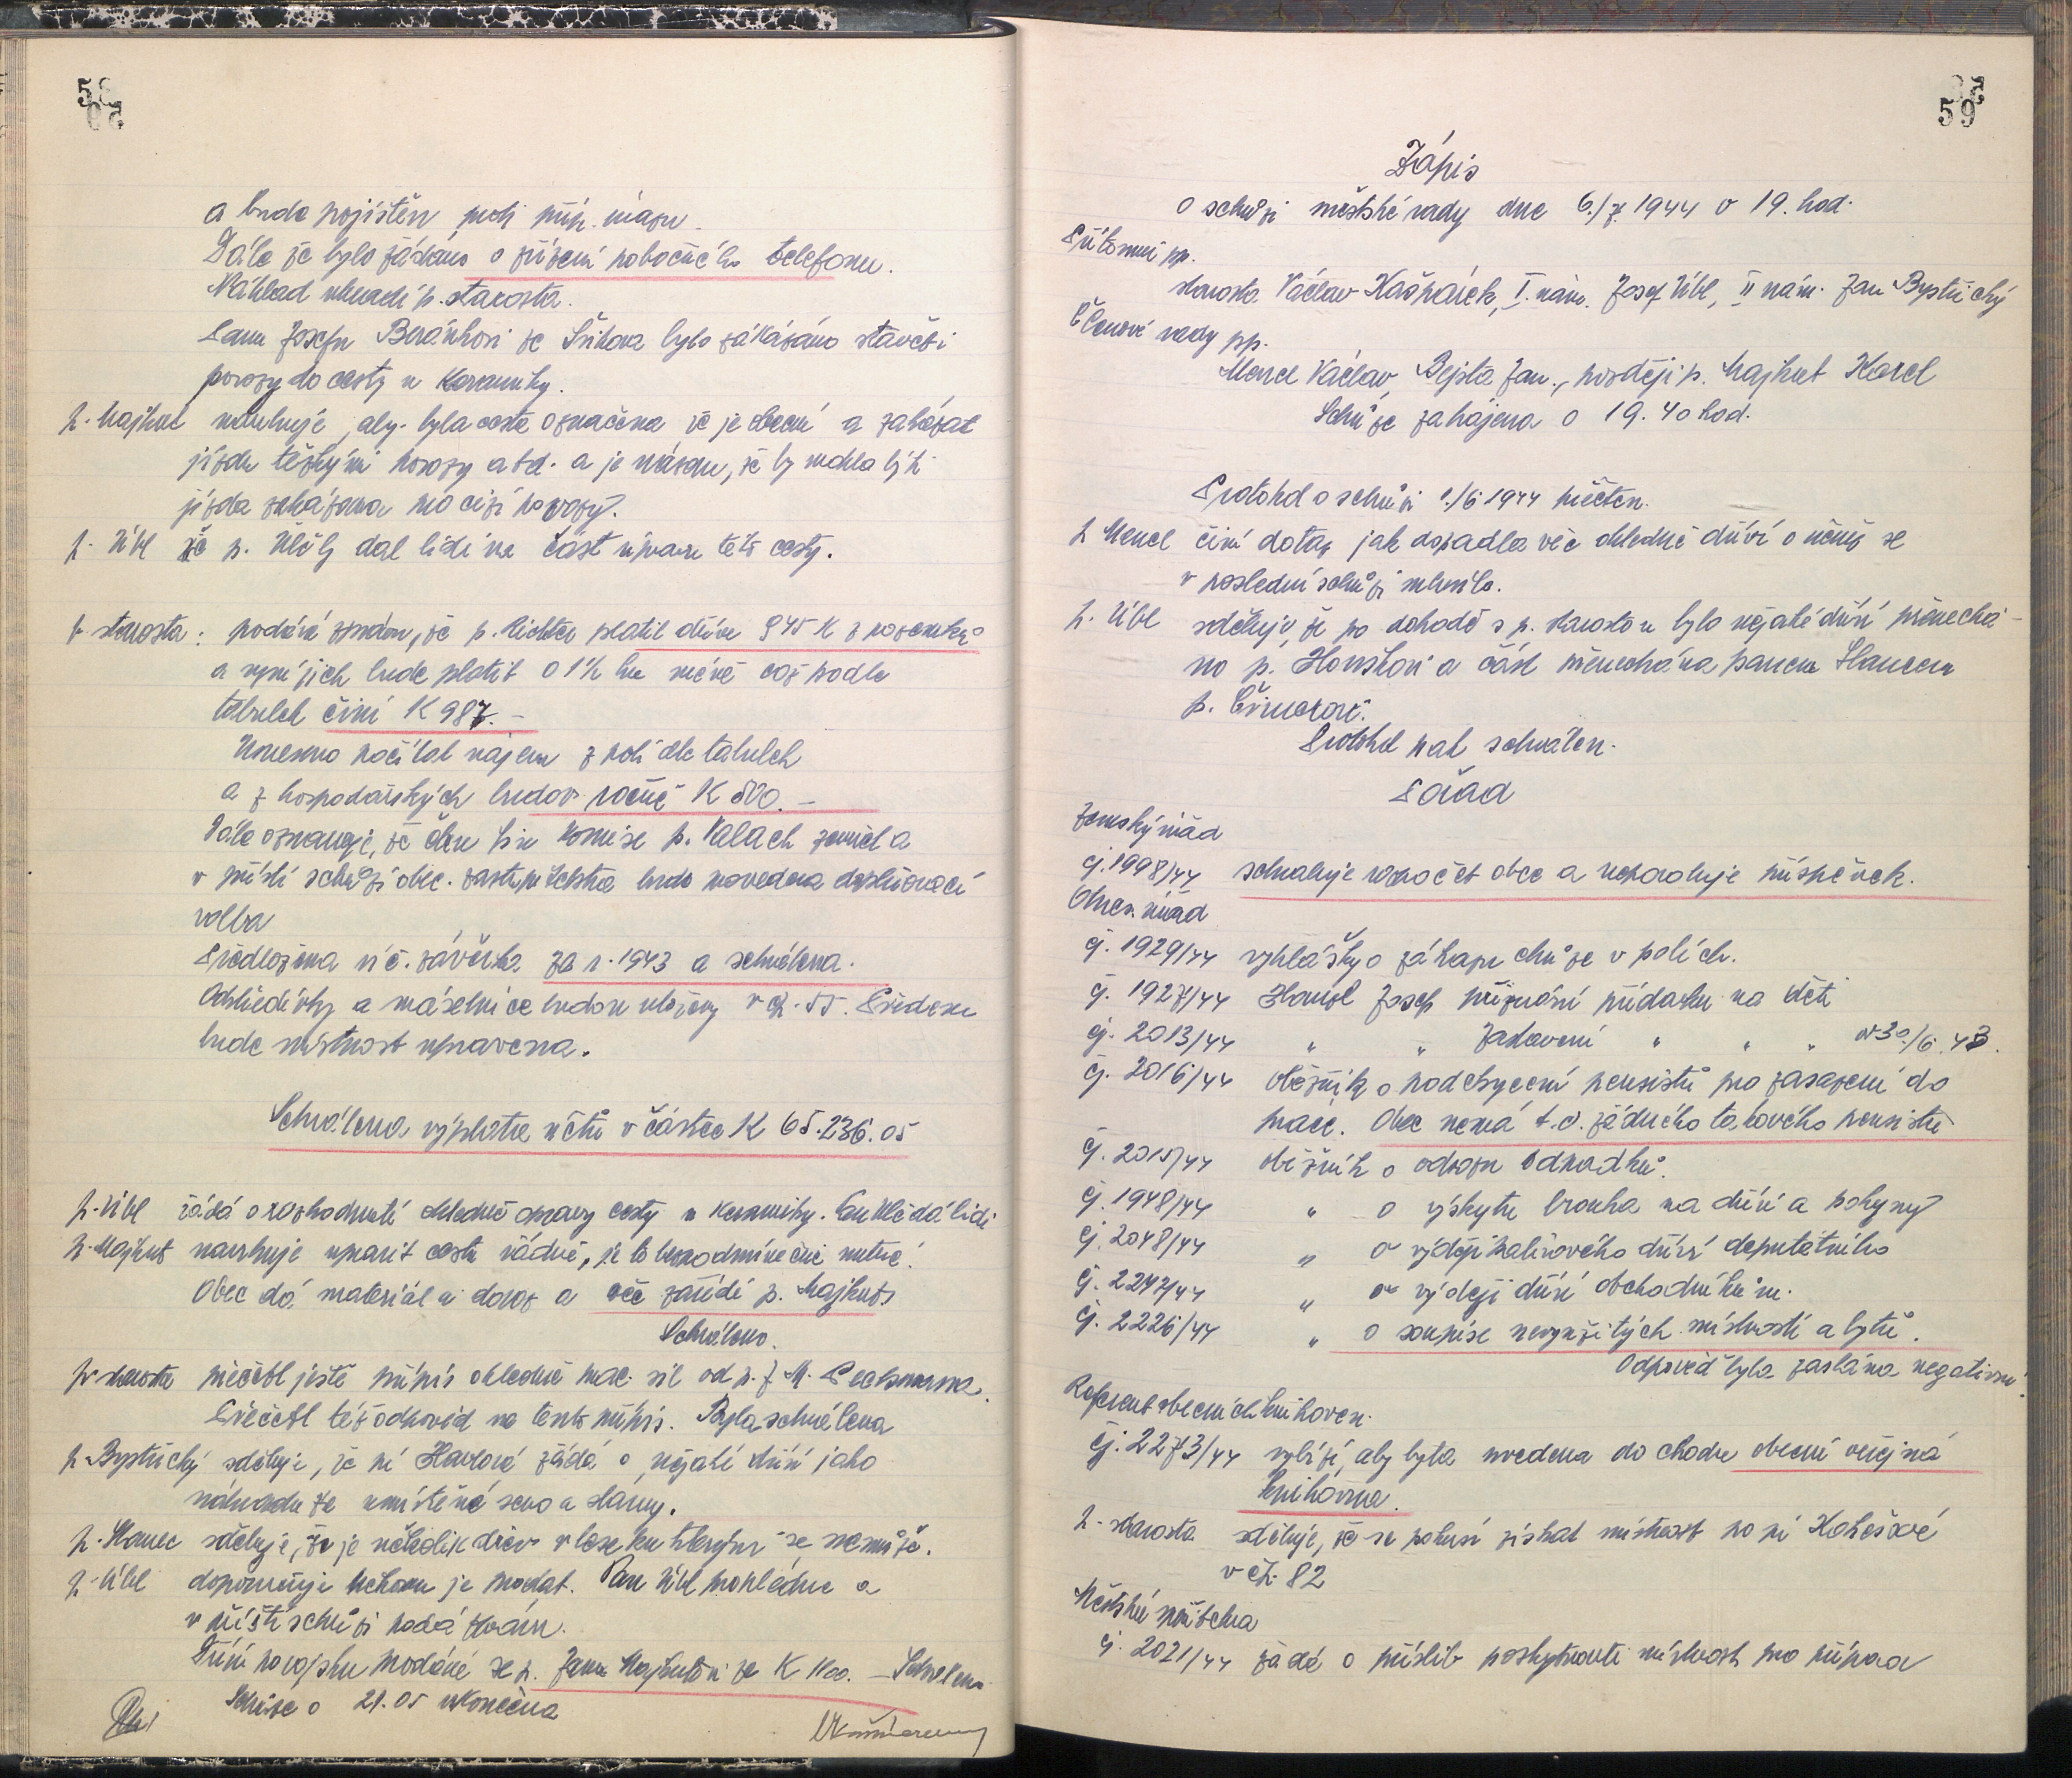 58
a bude pojištěn proti příp. úrazu.
Dále že bylo žádáno o zřízení pobočného telefonu.
Náklad uhradí p. starosta.
Panu Josefu Beránkovi ze Šihova bylo zakázáno stavěti
povozy do cesty u Keramiky.
p. Majhut navrhuje, aby byla cesta označena že je obecní a zakázat
jízdu těžkými povozy atd. a je názoru, že by mohla býti
jízda zakázána pro cizí povozy.
p. Úbl že p. Uhlí dal lidi na část úpravu této cesty.
p. starosta: podává zprávu, že p. Richter platil dříve 945 K z pozemků
a nyní jich bude platit o 1½ ha méně což podle
tabulek činí K 987.-
Usneseno počítat nájem z polí dle tabulek
a z hospodářských budov ročně K 500.-
Dále oznamuje, že člen fin. komise p. Valach zemřel a
v příští schůzi obec. zastupitelstva bude provedena doplňovací
volba
Předložena úč. závěrka za r. 1943 a schválena.
Odstředivky a máselnice budou uloženy v čp. 55. Předem
bude místnost upravena.
Schválena výplata účtů v částce K 65.236.05
p. Úbl žádá o rozhodnutí ohledně opravy cesty u Keramiky. dá lidi
p. Majhut navrhuje upravit cestu řádně, je to bezpodmínečně nutné.
Obec dá materiál a dovoz a věc zařídí p. Majhut
Schváleno.
p. starosta přečetl ještě přípis ohledně prac. sil od p. J. M. Pecksmanna.
Přečetl též odpověď na tento přípis. Byla schválena
p. Bystřický sděluje, že pí Havlová žádá o nějaké dříví jako
náhradu za umístěné seno a slámy.
p. Hanec sděluje, že je několik dřev v lese ku kterým se nemůže.
p. Úbl doporučuje nechat je prodat. Pan Úbl prohlédne a
v příští schůzi podá zprávu.
Dříví po vojsku prodáné se p. Janu Majhutovi za K 1100.- Schváleno
Schůze o 21.05 ukončena
59
Zápis
o schůzi městské rady dne 6./7. 1944 v 19. hod.
Přítomni pp.
starosta Václav Kašpárek, I. nám. Josef Úbl, II nám. Jan Bystřický
Členové rady pp.
Mencl Václav, Rejsta Jan., později p. Majhut Karel
Schůze zahájena o 19.40 hod.
Protokol o schůzi 1./6. 1944 přečten.
p. Mencl činí dotaz jak dopadla věc ohledně dříví o němž se
v poslední schůzi mluvilo.
p. Úbl sděluje, že po dohodě s p. starostou bylo nějaké dříví přenechá-
no p. Horskovi a část přenechána panem Hancem
p.
Protokol pak schválen.
Pořad
Zemský úřad
čj. 1998/44 schvaluje rozpočet obce a nepovoluje příspěvek.
Okres. úřad
čj. 1929/44 vyhlášky o zákazu chůze v polích.
čj. 1927/44 Josef přiznání přídavku na děti
čj. 2013/44 " " Zastavení " " " od 30/6. 43.
čj. 2016/44 oběžník o podchycení pensistů pro zasazení do
práce. Obec nemá t.č. žádného takového pensistu
čj. 2015/44 oběžník o odvozu odpadků.
čj. 1948/44 " o výskytu brouka na dříví a pokyny
čj. 2048/44 " o výdeji palivového dříví deputátního
čj. 2247/44 " o výdeji dříví obchodníkům.
čj. 2226/44 " o soupise nevyužitých místností a bytů.
Odpověď byla zaslána negativní.
Referent obecních knihoven.
čj. 2273/44 vybízí, aby byla uvedena do chodu obecní veřejná
knihovna.
p. starosta sděluje, že se pokusí získat místnost po pí Kolešové
v čp. 82
Městská spořitelna
čj. 2021/44 žádá o příslib poskytnouti místnost pro případ